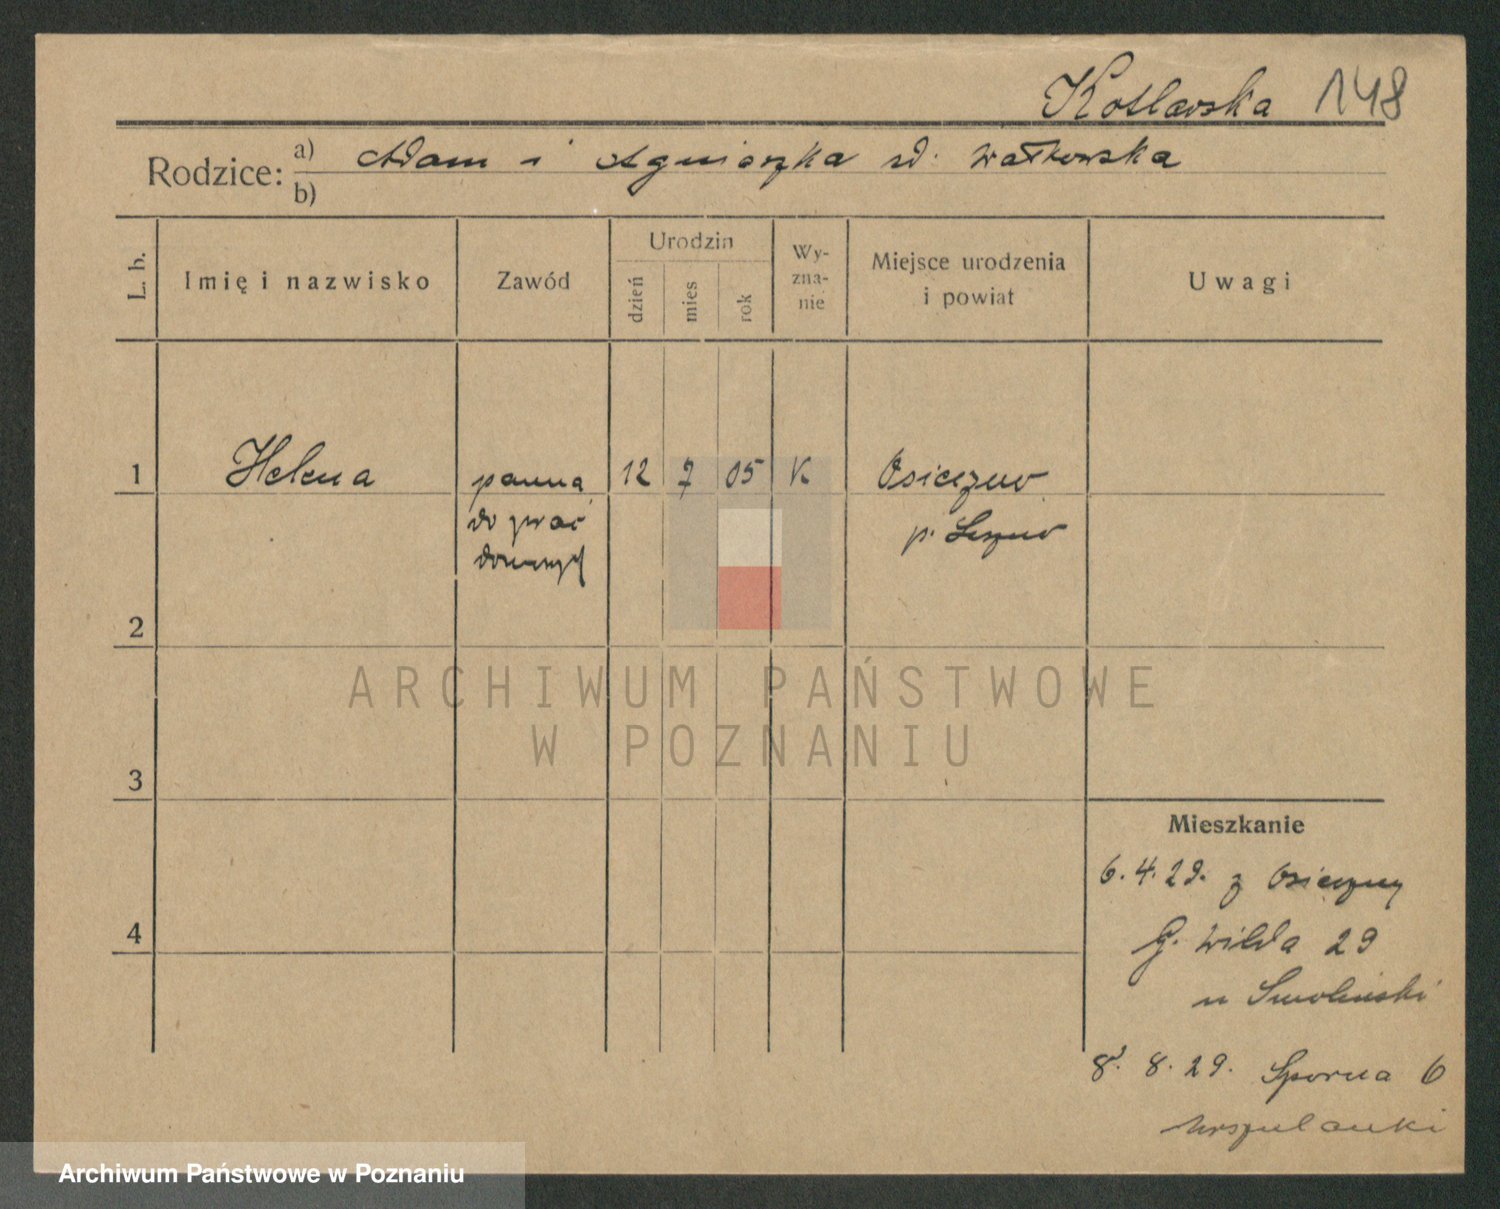 Kotlarska 148
Rodzice: a) Adam i Agnieszka zd. Wałkowska
b)
L. b.
Imię i nazwisko
Zawód
Urodzin
dzień
mies
rok
Wy-
zna-
nie
Miejsce urodzenia
i powiat
Uwagi
1 Helena panna 12 7 05 K Osieczno
p. Leszno
2
3
4
ARCHIWUM PAŃSTWOWE
W POZNANIU
Mieszkanie
6.4.29. z Osieczny
G. Wilda 29
u Smoleński
8. 8. 29. Sporna 6
Urszulanki
Archiwum Państwowe w Poznaniu